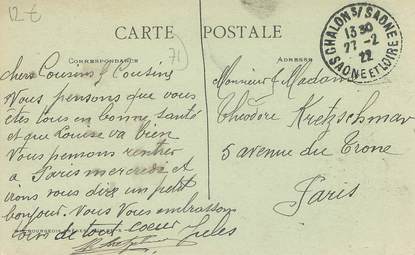 12 €
CARTE POSTALE
71
CHALON S/ SAONE
13 30
27-2
22
SAONE ET LOIRE
CORRESPONDANCE
ADRESSE
chers Cousins & Cousins
Nous pensons que vous
êtes tous en bonne santé
et que Louise va bien
Nous pensons rentrer
à Paris mercredi et
irons vous dire un petit
bonjour. Nous Vous embrassons
tous de tout coeur
Jules
Monsieur & Madame
Théodore Kretzschmar
5 avenue du Trone
Paris